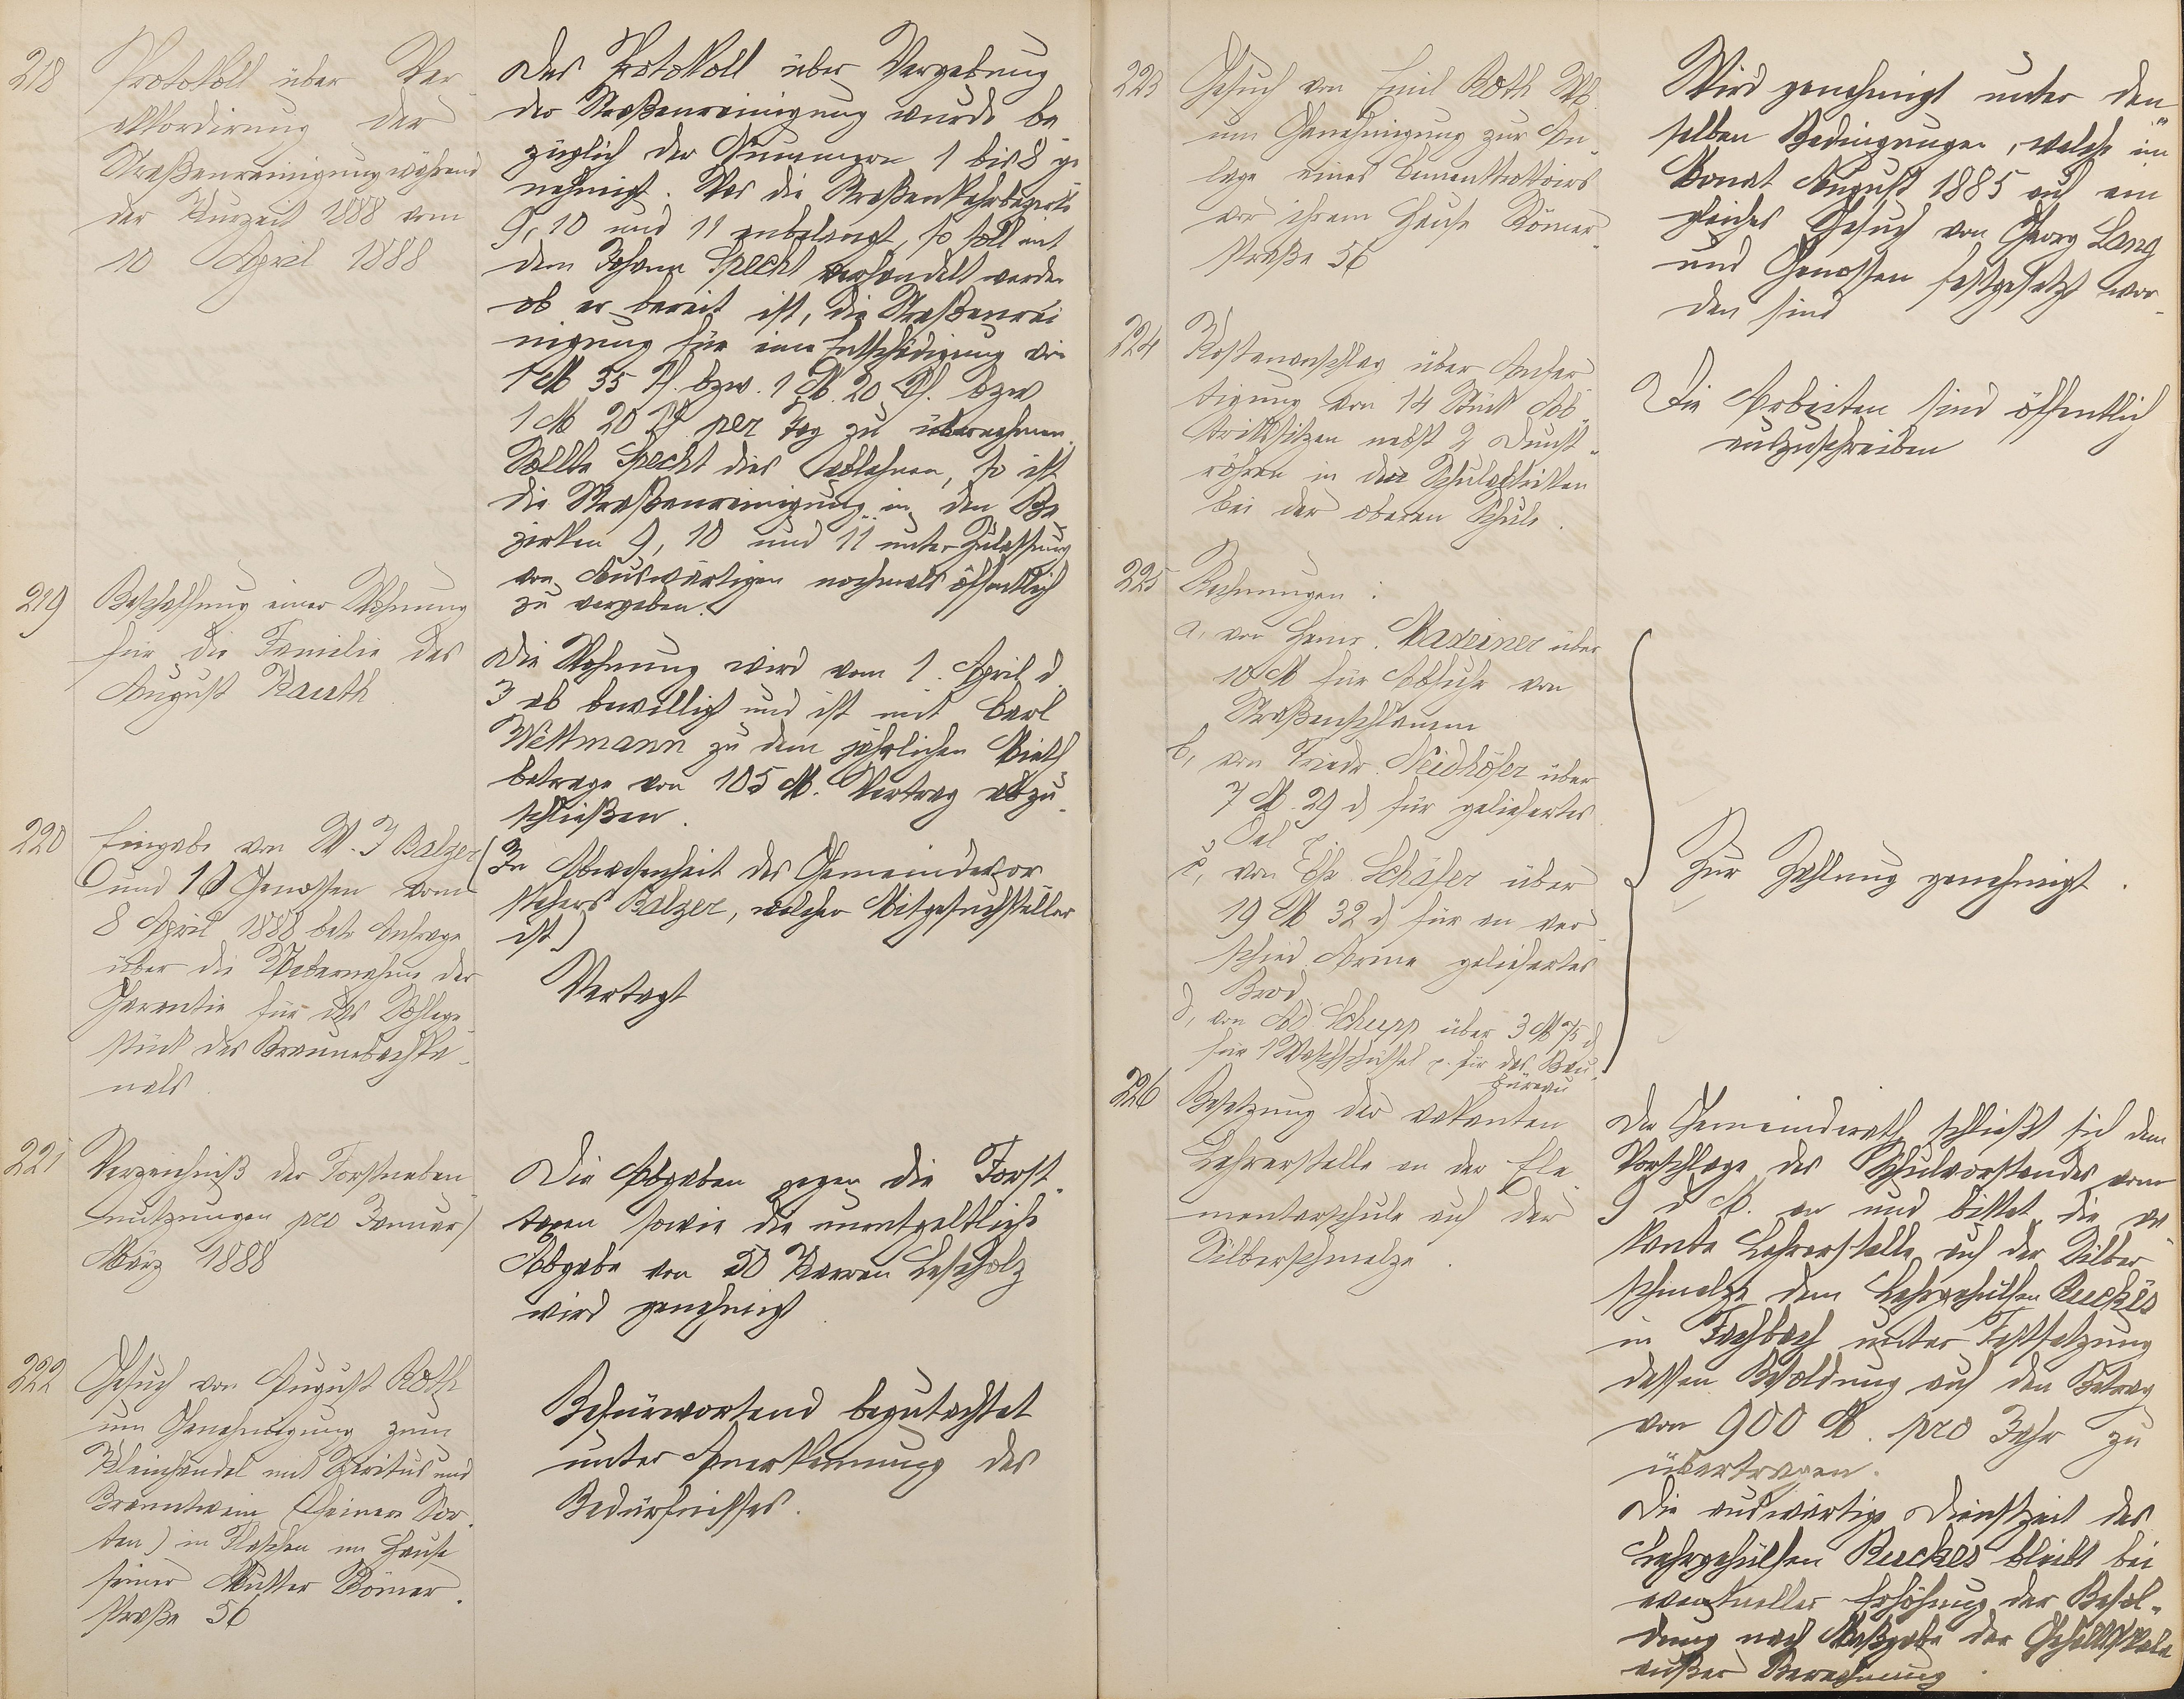 218
Protokoll über Ver-
akkordirung der
Straßenreinigung während
der Kurzeit 1888 vom
10 April 1888
Das Protokoll über Vergebung
der Straßenreinigung wurde be
züglich der Nummern 1 bis 8 ge
nehmigt. Was die Straßenkehrbezirke
9, 10 und 11 anbelangt, so soll mit
dem Johann Specht verhandelt werden
ob er bereit ist, die Straßenrei
nigung für eine Entschädigung von
1 M 35 Pf. bzw. 1 M. 20 Pf. bzw
1 M 20 Pf per Tag zu übernehmen.
Sollte Specht dies ablehnen, so ist
die Straßenreinigung in den Be
zirken 9, 10 und 11 unter Zulassung
von Auswärtigen nochmals öffentlich
zu vergeben.
219
Beschaffung einer Wohnung
für die Familie des
August Kauth
Die Wohnung wird vom 1. April d.
J ab bewilligt und ist mit Carl
Wittmann zu dem jährlichen Mieth
betrage von 105 M. Vertrag abzu-
schließen.
220
Eingabe von W. J Balzer
und 10 Genossen vom
8 April 1888 betr Anfrage
über die Uebernahme der
Garantie für das
stück des Braunebachka-
nals.
(In Abwesenheit des Gemeindevor
stehers Balzer, welcher Mitgesuchsteller
ist)
Vertagt
221
Verzeichniß der Forstneben
nutzungen pro Januar/
März 1888
Die Abgaben gegen die Forst-
taxen sowie die unentgeltliche
Abgabe von 50 Karren Leseholz
wird genehmigt
222
Gesuch von August Roth
um Genehmigung zum
Kleinhandel mit Spiritus und
Branntwein (feinere Sor-
ten) in Flaschen im Hause
seiner Mutter Römer-
straße 56
Befürwortend begutachtet
unter Anerkennung des
Bedürfnisses.
223
Gesuch von Emil Roth Wb.
um Genehmigung zur An-
lage eines Cementtrottoirs
vor ihrem Hause Römer-
straße 56
Wird genehmigt unter den
selben Bedingungen, welche im
Monat August 1885 auf ein
gleiches Gesuch von Georg Lang
und Genossen festgesetzt wor-
den sind
224
Kostenanschlag über Anfer
tigung von 14 Stück Ab-
trittsitzen nebst 2 Dunst-
röhren in den
bei der oberen Schule.
Die Arbeiten sind öffentlich
auszuschreiben
225
Rechnungen:
a, von Heinr. Maxeiner über
10 M für Abfuhr von
Straßenschlamm
b, von Friedr. Neidhöfer über
7 M. 29 d für geliefertes
Oel
c, von Chr. Schäfer über
19 M 32 d für an ver
schied. Arme geliefertes
Brod
d, von Ad Schupp über 3 M
für 1 Waschschüssel p. für das Bau-
büreau
Zur Zahlung genehmigt.
226
Besetzung der vakanten
Lehrerstelle an der Ele-
mentarschule auf der
Silberschmelze.
Der Gemeinderath schließt sich dem
Vorschlage des Schulvorstandes vom
9 d M. an und bittet die va-
kante Lehrerstelle auf der Silber-
schmelze dem Lehrgehülfen Ruckes
in Fachbach unter Festsetzung
dessen Besoldung auf den Betrag
von 900 M. pro Jahr zu
übertragen.
Die auswärtige Dienstzeit des
Lehrgehülfen Ruckes bleibt bei
eventueller Erhöhung der Besol-
dung nach Maßgabe der Gehaltsskala
außer Berechnung.